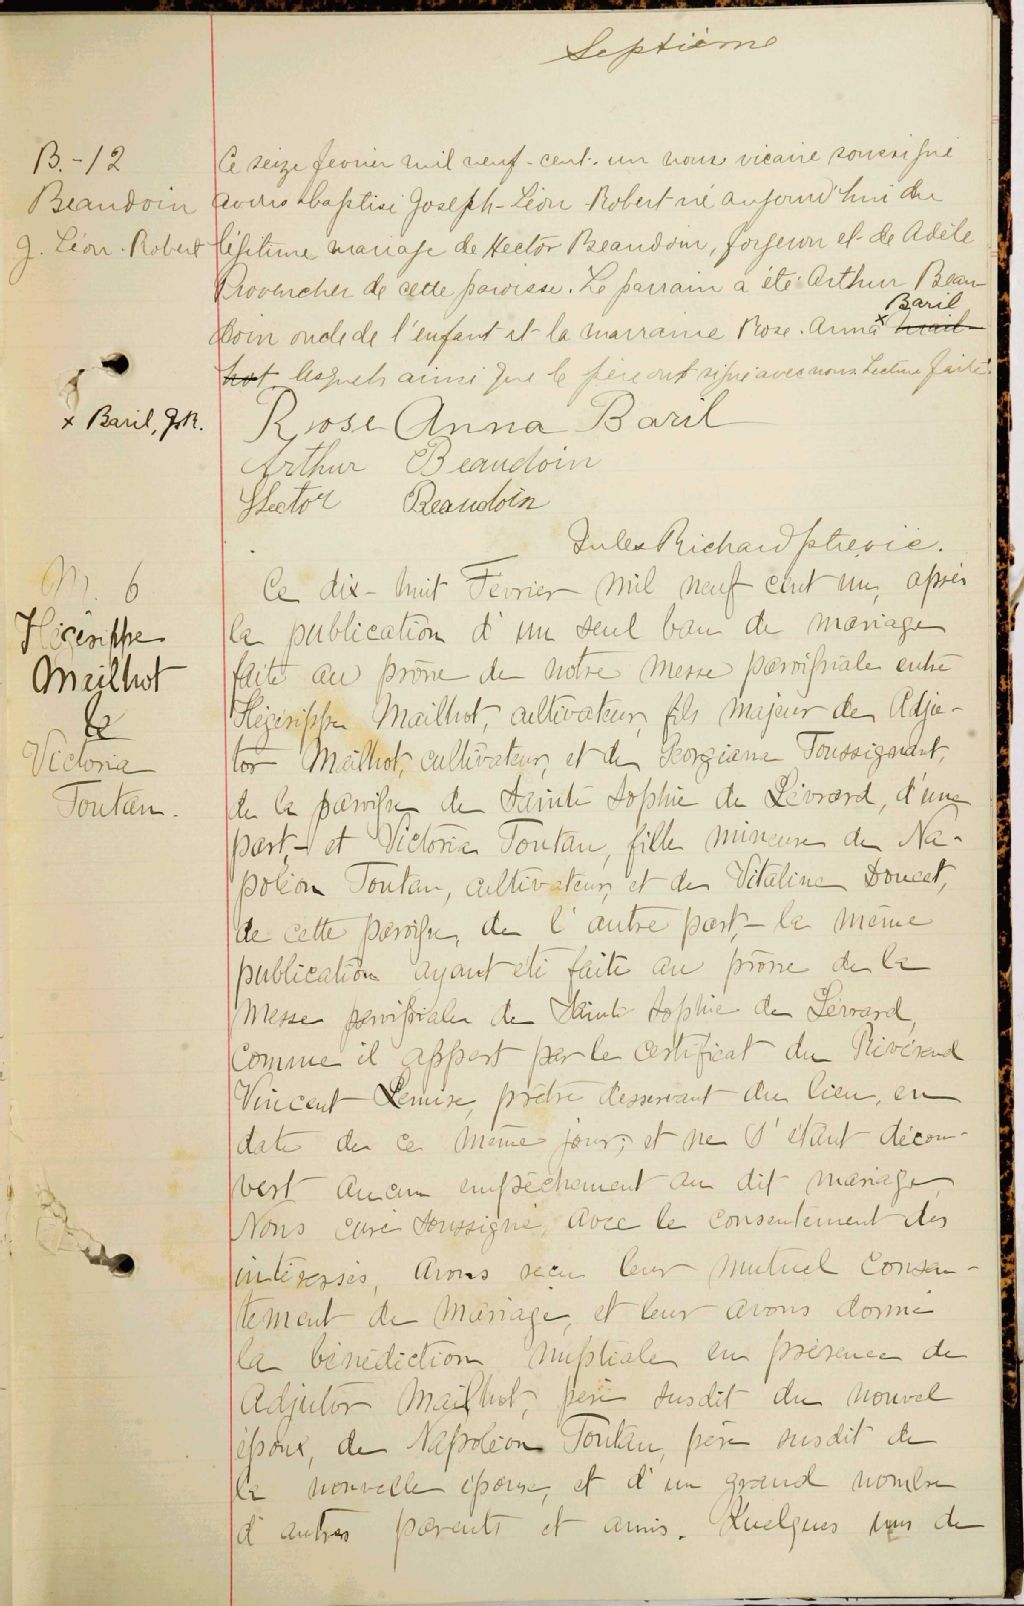 Septième
B.-12
Beaudoin
J. Léon-Robert
Ce seize fevrier mil neuf-cent-un nous vicaire soussigné
avons baptisé Joseph-Léon-Robert né aujourd'hui du
légitime mariage de Hector Beaudoin, forgeron et de Adèle
Provencher de cette paroisse. Le parrain a été Arthur Beau-
doin oncle de l'enfant et la marraine Rose-Anna x Baril Mail-
hot lesquels ainsi que le père ont signé avec nous. Lecture faite.
x Baril, J.R.
Rrose Anna Baril
Arthur Beaudoin
Hector Beaudoin
Jules Richard ptre vic.
M. 6
Hégésippe
Mailhot
&
Victoria
Toutan.
Ce dix-huit Février mil neuf cent un, après
la publication d'un seul ban de mariage
faite au prône de notre messe paroissiale entre
Hégésippe Mailhot, cultivateur, fils majeur de Adju-
tor Mailhot, cultivateur, et de Georgiana Toussignant,
de la paroisse de Sainte Sophie de Lévrard, d'une
part,- et Victoria Toutan, fille mineure de Na-
poléon Toutan, cultivateur, et de Vitaline Doucet,
de cette paroisse, de l'autre part,- la même
publication ayant été faite au prône de la
Messe paroissiale de Sainte Sophie de Lévrard,
comme il appert par le certificat du Révérend
Vincent Lemire, prêtre desservant du lieu, en
date de ce même jour; et ne s'étant décou-
vert aucun empêchement au dit mariage,
Nous curé soussigné, avec le consentement des
intéressés, avons reçu leur mutuel consen-
tement de mariage, et leur avons donné
la bénédiction nuptiale en présence de
Adjutor Mailhot, père susdit du nouvel
époux, de Napoléon Toutan, père susdit de
la nouvelle épouse, et d'un grand nombre
d'autres parents et amis. Quelques uns de